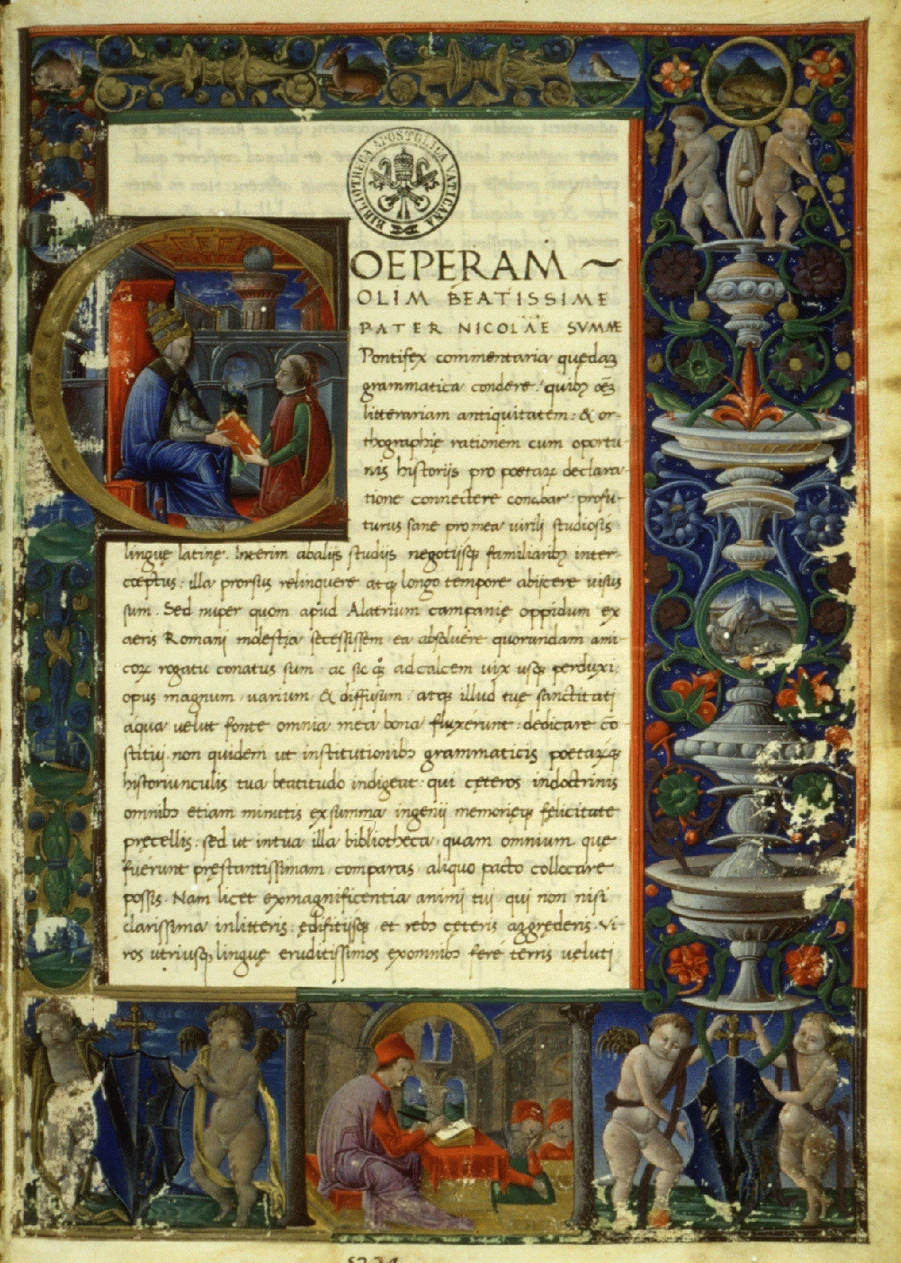 BIBLIOTHECA APOSTOLICA VATICANA
COEPERAM
OLIM BEATISSIME
PATER NICOLAE SVMME
Pontifex commentaria quędaȝ
grammatica condere: quibꝫ oēꝫ
litterariam antiquitatem: & or-
thographię rationem cum oportu
nis historijs pro poetaꝝ declara
tione connectere conabar: profu-
turus sane pro mea uirili studiosis
linguę latinę. Interim ab alijs studijs negotijsqꝫ familiaribꝫ inter-
cęptus: illa prorsus relinquere atqꝫ longo tempore abijcere uisus
sum. Sed nuper quom apud Alatrium campanię oppidum ex
aeris Romani molestia secessissem ea absoluere quorundam ami
coꝝ rogatu conatus sum. ac sic qͣꝫ ad calcem uix usqꝫ perduxi:
opus magnum uarium & diffusum: atqꝫ illud tuę sanctitati
a qua uelut fonte omnia mea bona fluxerunt: dedicare cō
stitui. non quidem ut institutionibꝫ grammaticis poetaꝝqꝫ
historiunculis tua beatitudo indigeat: qui cęteros in doctrinis
omnibꝫ etiam minutis ex summa ingenij memorięqꝫ felicitate
pręcellis: sed ut in tua illa bibliotheca quam omnium quę
fuerunt pręstantissimam comparas aliquo pacto collocare
possis. Nam licet ex magnificentia animi tui qui non nisi
clarissima in litteris: ędifitijsqꝫ et rebꝫ cęteris aggrederis. Vi
ros utriusqꝫ linguę eruditissimos ex omnibꝫ fere terris ueluti